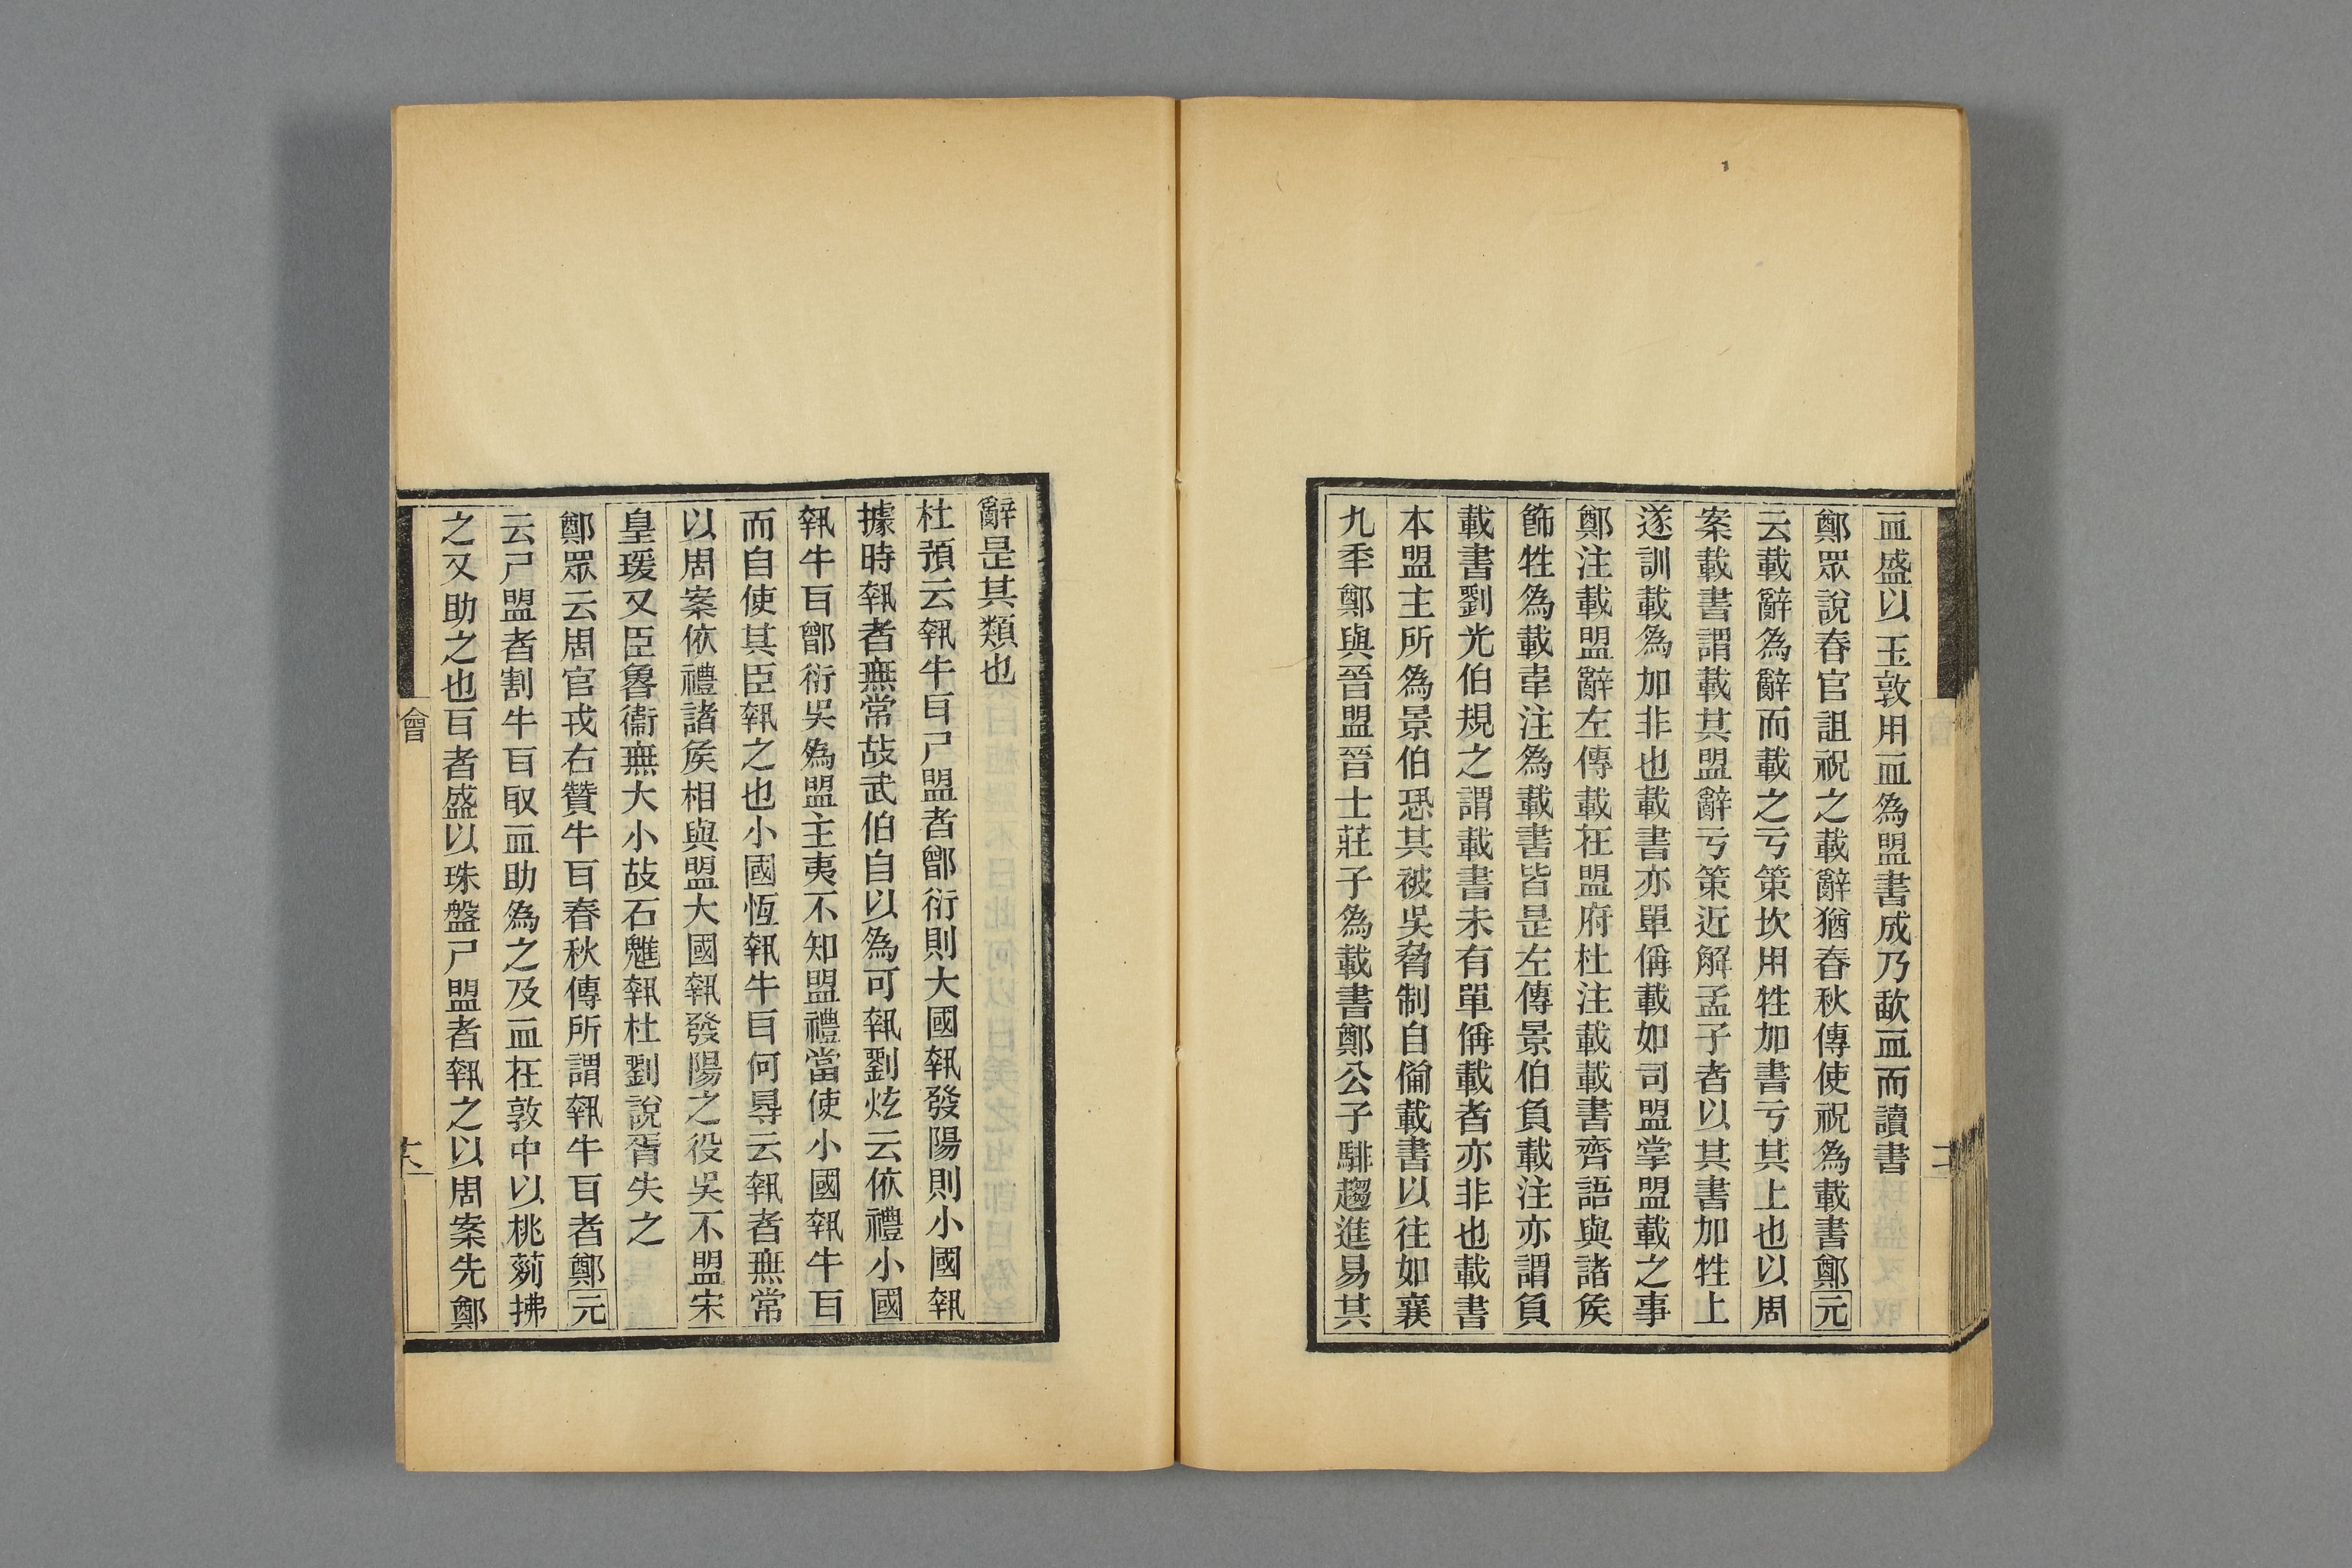 血盛以玉敦用血為盟書成乃歃血而讀書
鄭眾說春官詛祝之載辭猶春秋傳使祝為載書鄭元
云載辭為辭而載之亏策坎用牲加書亏其上也以周
案載書謂載其盟辭亏策近解孟子者以其書加牲上
遂訓載為加非也載書亦單偁載如司盟掌盟載之事
鄭注載盟辭左傳載在盟府杜注載載書齊語與諸矦
飾牲為載韋注為載書皆是左傳景伯負載注亦謂負
載書劉光伯規之謂載書未有單偁載者亦非也載書
本盟主所為景伯恐其被吳脅制自僃載書以往如襄
九秊鄭與晉盟晉士莊子為載書鄭公子騑趨進易其
辭是其類也
杜預云執牛耳尸盟者鄫衍則大國執發陽則小國執
據時執者無常故武伯自以為可執劉炫云依禮小國
執牛耳鄫衍吳為盟主夷不知盟禮當使小國執牛耳
而自使其臣執之也小國恆執牛耳何㝵云執者無常
以周案依禮諸矦相與盟大國執發陽之役吳不盟宋
皇瑗又臣魯衞無大小故石魋執杜劉說胥失之
鄭眾云周官戎右贊牛耳春秋傳所謂執牛耳者鄭元
云尸盟者割牛耳取血助為之及血在敦中以桃茢拂
之又助之也耳者盛以珠盤尸盟者執之以周案先鄭
會